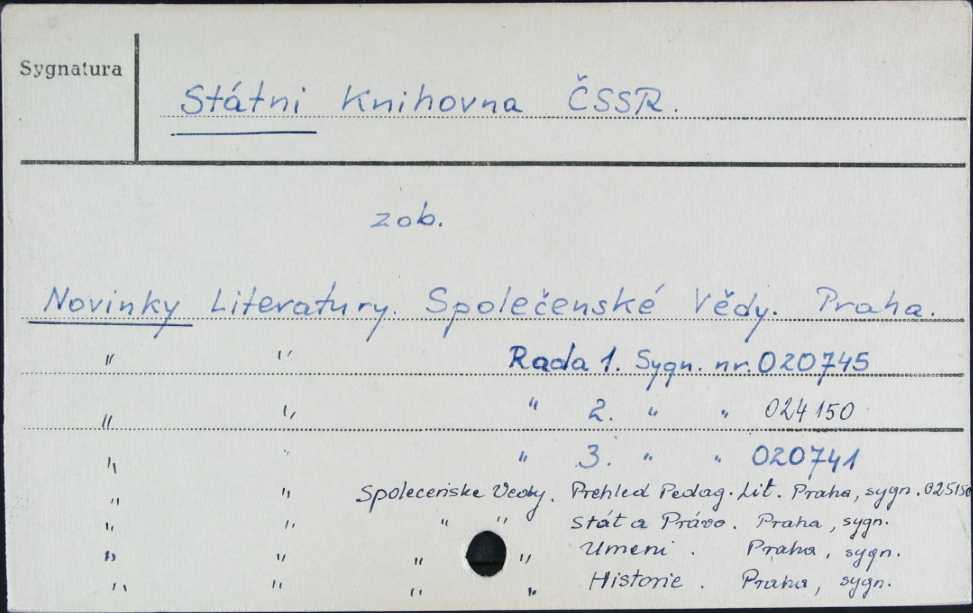 Sygnatura
Státni Knihovna ČSSR.
zob.
Novinky Literatury. Společenské Vědy. Praha.
" " Rada 1. Sygn. nr. 020745
" " " 2. " " 024150
" " " 3. " " 020741
" " Spolecenske Vedy. Prehled Pedag. Lit. Praha, sygn. 025150
" " " " Stát a Právo. Praha, sygn.
" " " " Umeni. Praha, sygn.
" " " " Historie. Praha, sygn.